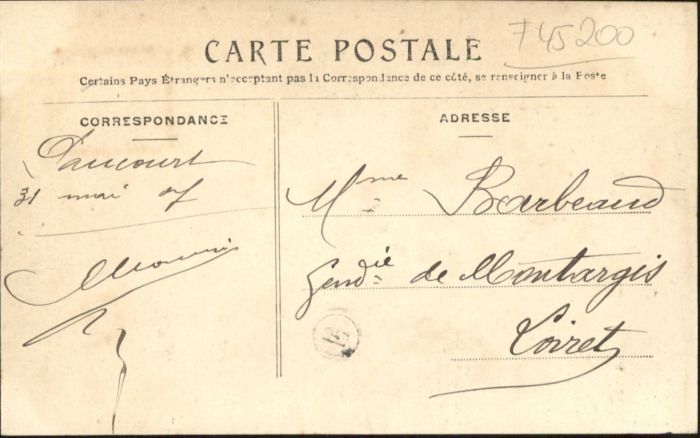 745200
CARTE POSTALE
Certains Pays Étrangers n'acceptant pas la Correspondance de ce côté, se renseigner à la Poste
CORRESPONDANCE
Paucourt
31 mai 07
ADRESSE
Mme Barbeaud
Gendie de Montargis
Loiret